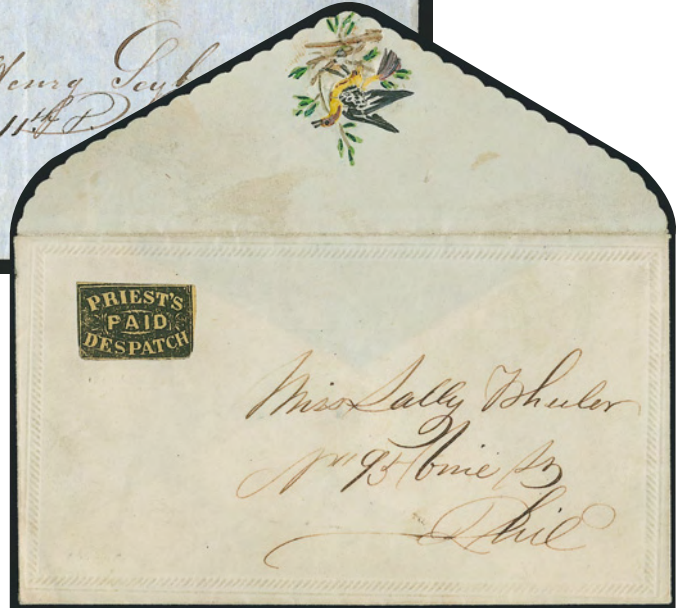 Henry
11th
PRIEST'S
PAID
DESPATCH
Miss Sally Wheeler
No 95 Vine St
Phil